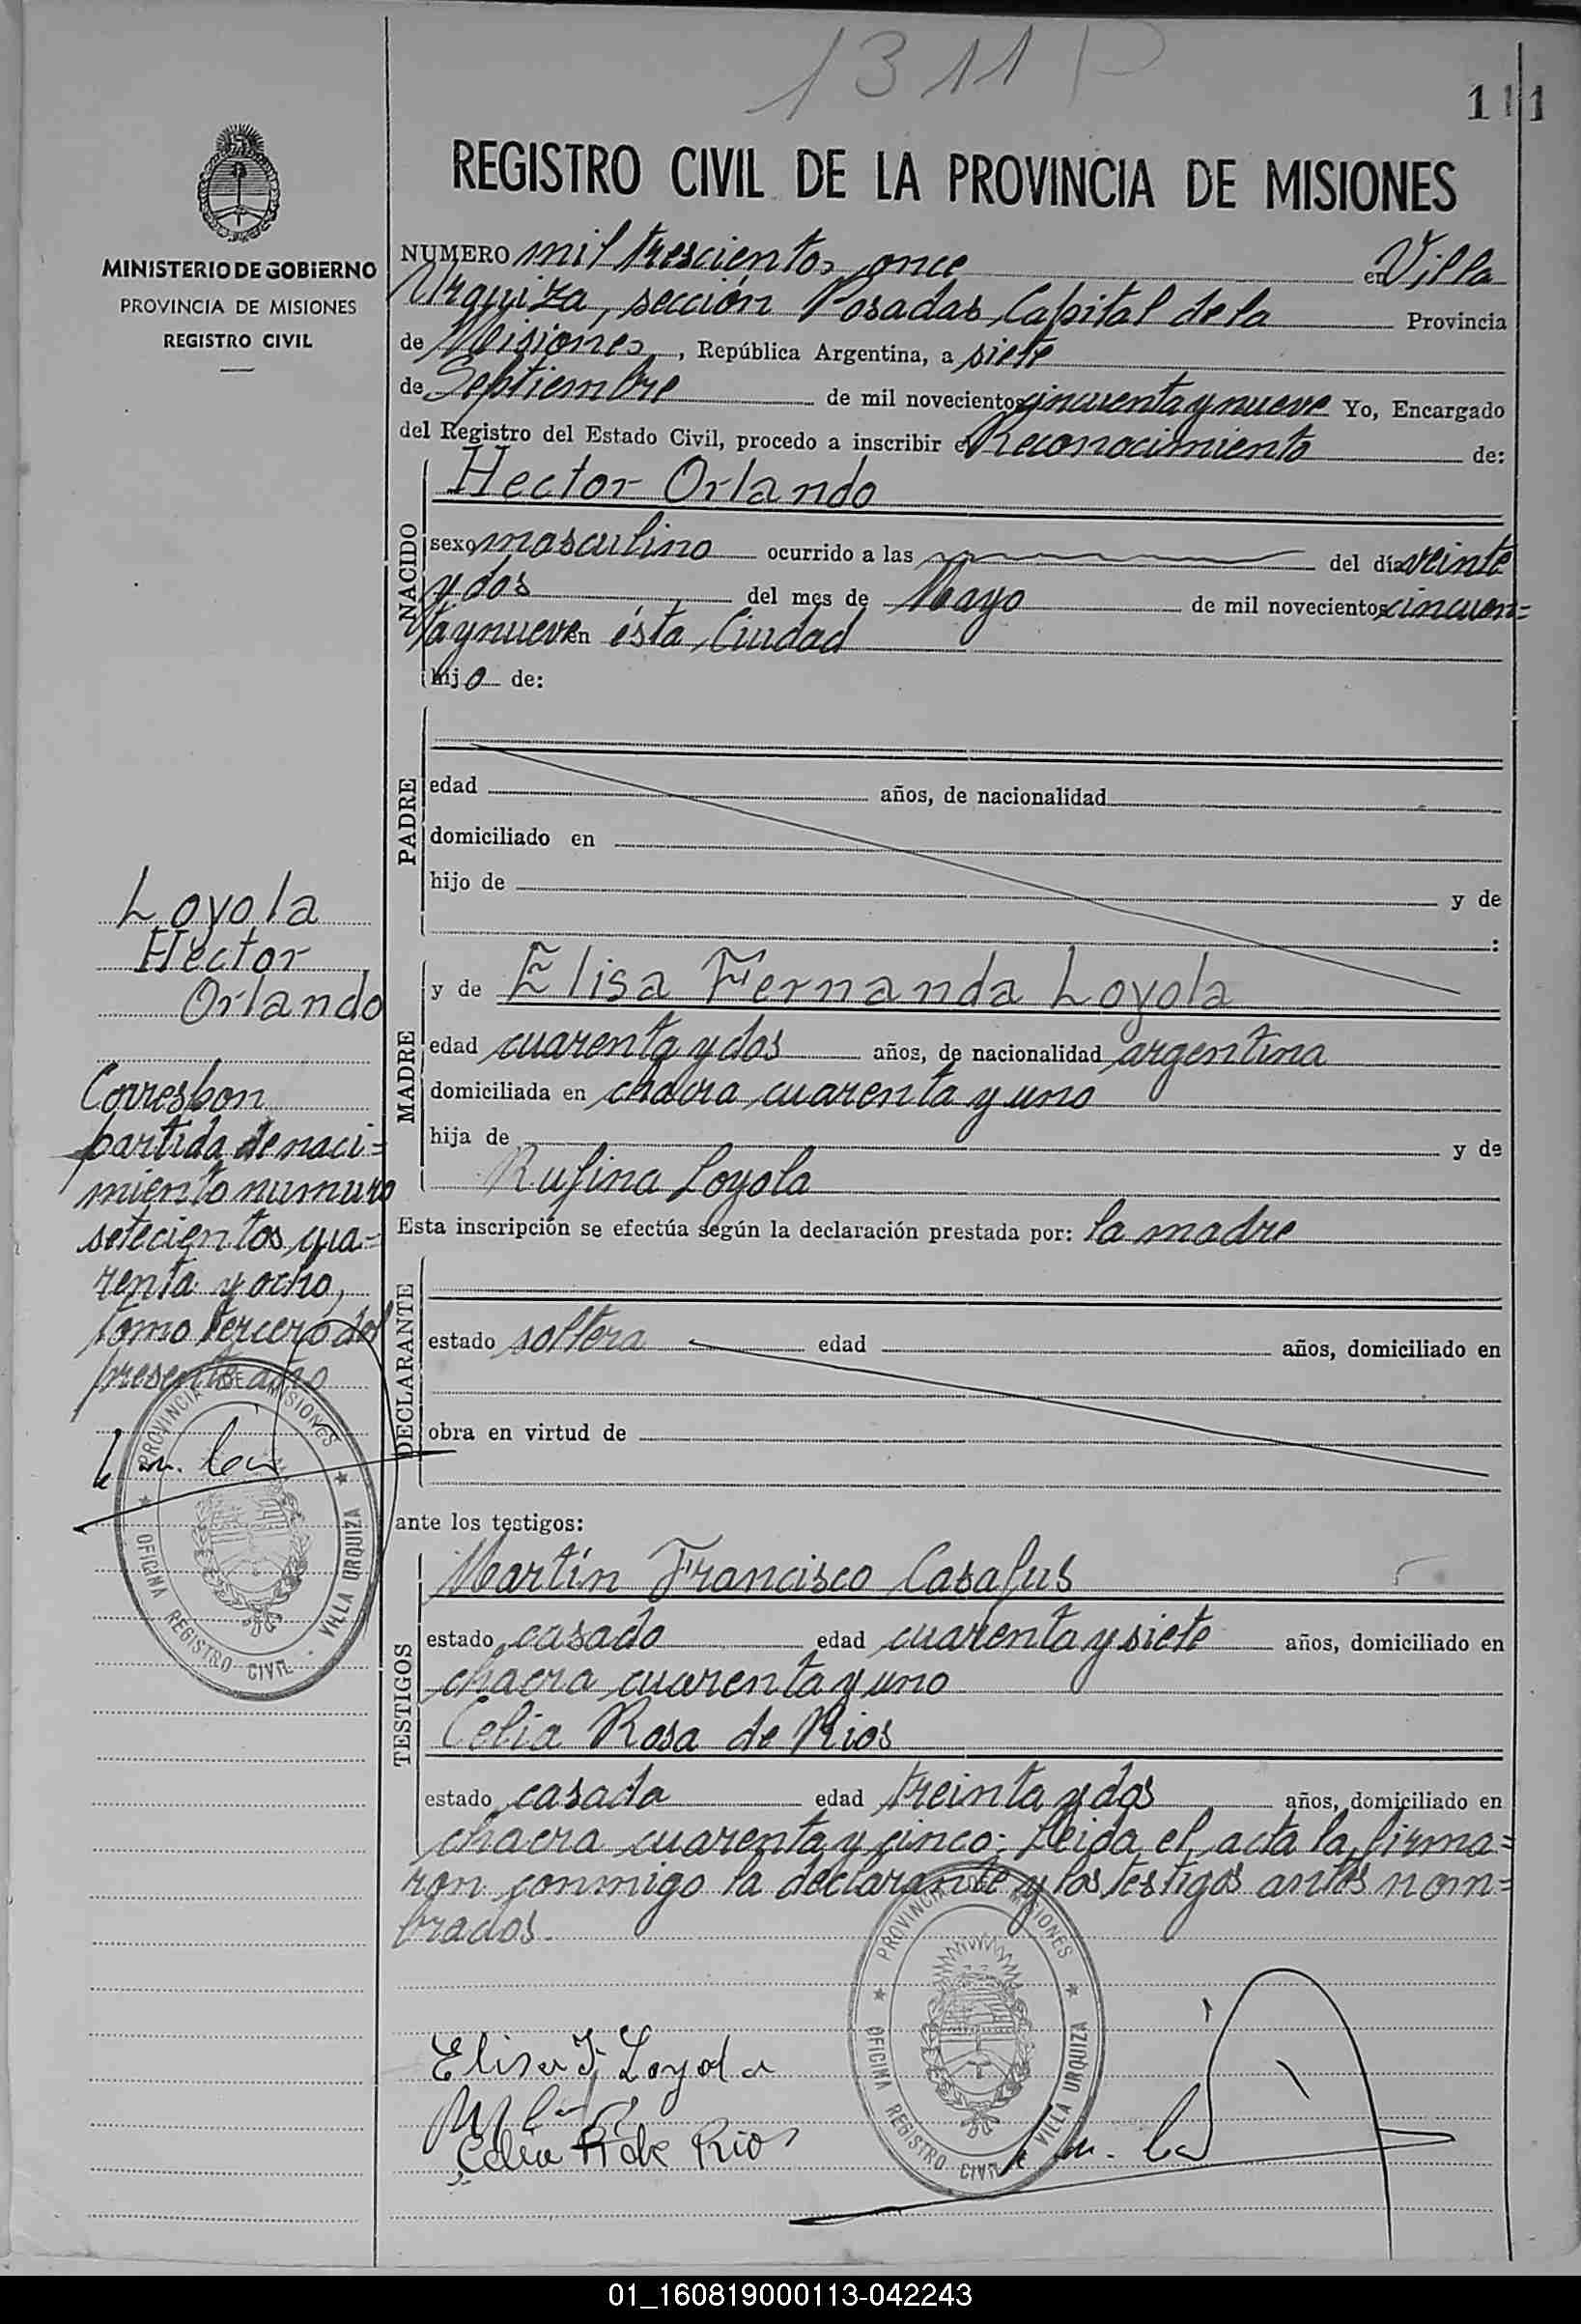 1311 P
111
REGISTRO CIVIL DE LA PROVINCIA DE MISIONES
MINISTERIO DE GOBIERNO
PROVINCIA DE MISIONES
REGISTRO CIVIL
NUMERO mil trescientos once en Villa
Urquiza, sección Posadas, Capital de la Provincia
de Misiones, República Argentina, a siete
de Septiembre de mil novecientos cincuenta y nueve Yo, Encargado
del Registro del Estado Civil, procedo a inscribir el Reconocimiento de:
NACIDO
Hector Orlando
sexo masculino ocurrido a las del día veinte
y dos del mes de Mayo de mil novecientos cincuen=
ta y nueve en ésta Ciudad
hijo de:
PADRE
edad años, de nacionalidad
domiciliado en
hijo de y de
:
MADRE
y de Elisa Fernanda Loyola
edad cuarenta y dos años, de nacionalidad argentina
domiciliada en chacra cuarenta y uno
hija de y de
Rufina Loyola
Esta inscripción se efectúa según la declaración prestada por: la madre
DECLARANTE
estado soltera edad años, domiciliado en
obra en virtud de
ante los testigos:
TESTIGOS
Martín Francisco Casafus
estado casado edad cuarenta y siete años, domiciliado en
chacra cuarenta y uno
Celia Rosa de Rios
estado casada edad treinta y dos años, domiciliado en
chacra cuarenta y cinco. Leida el acta la firma=
ron conmigo la declarante y los testigos antes nom=
brados.
Loyola
Hector
Orlando
Correspon
partida de naci=
miento numero
setecientos cua=
renta y ocho,
tomo tercero del
presente año
PROVINCIA DE MISIONES
OFICINA REGISTRO CIVIL - VILLA URQUIZA
Elisa F. Loyola
Celia R de Rios
PROVINCIA DE MISIONES
OFICINA REGISTRO CIVIL VILLA URQUIZA
01_160819000113-042243